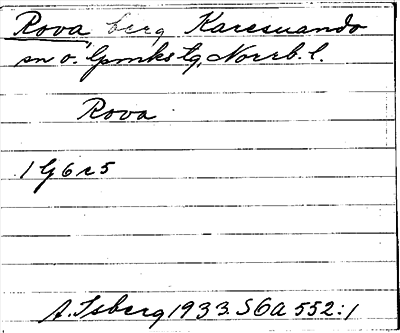 Rova, berg Karesuando
sn o. lpmks tg, Norrb. l.
Rova
1 G 6 r 5
A. Isberg 1933. SGA 552:1